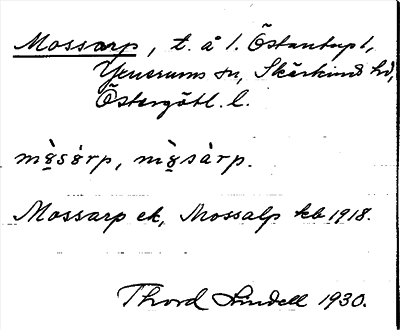 Mossarp, t. å 1. Östantorp 1,
Yxnerums sn, Skärkinds hd,
Östergötl. l.
mò̤sárp, mò̤sàrp.
Mossarp ek, Mossalp kb 1918.
Thord Lindell 1930.